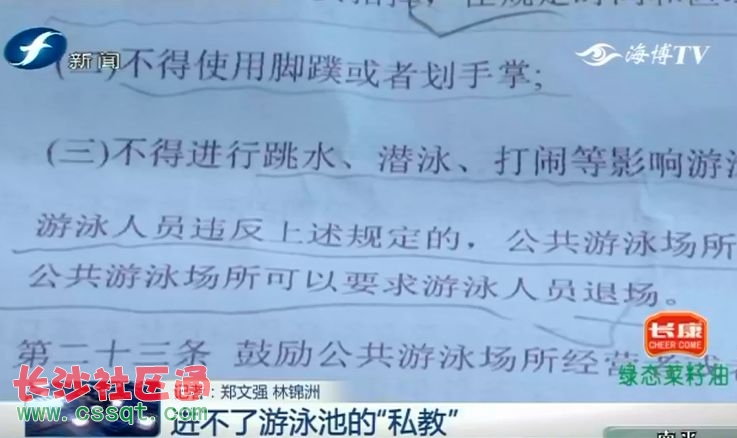 新闻
海博TV
不得使用脚蹼或者划手掌;
(三)不得进行跳水、潜泳、打闹等影响游泳
游泳人员违反上述规定的，公共游泳场所
公共游泳场所可以要求游泳人员退场。
第二十三条 鼓励公共游泳场所经营者或者
长康
CHEER COME
绿态菜籽油
长沙社区通
www.cssqt.com
记者：郑文强 林锦洲
进不了游泳池的“私教”